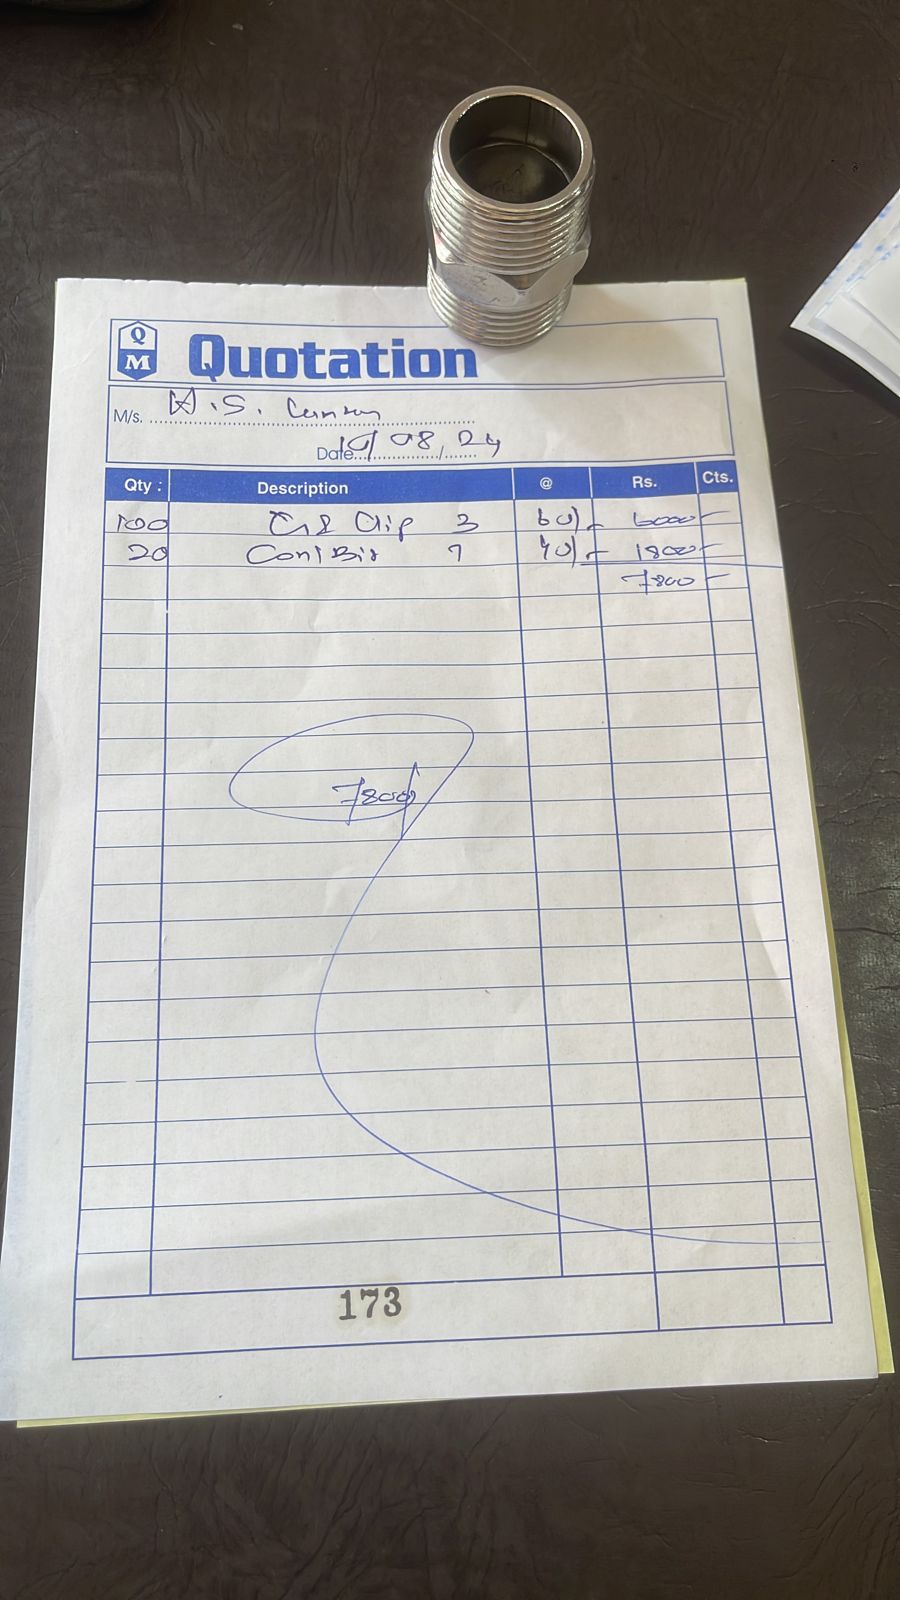 Q
M
Quotation
M/s. H.S.
Date 19/08/24
Qty : Description @ Rs. Cts.
100 Clip 3 60/- 6000-
20 7 90/- 1800-
7800-
7800/
173